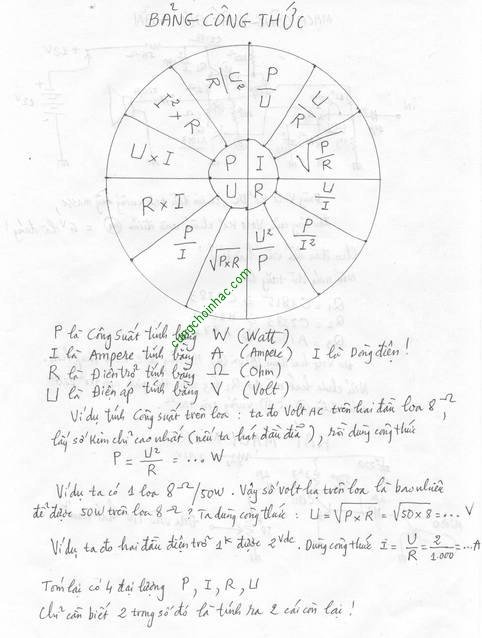 BẢNG CÔNG THỨC
U²/R
P/U
I² x R
U/R
U x I
√P/R
P
I
U
R
R x I
U/I
P/I
P/I²
√PxR
U²/P
cungchoinhac.com
P là Công Suất tính bằng W (Watt)
I là Ampere tính bằng A (Ampere) I là Dòng điện !
R là Điện trở tính bằng Ω (Ohm)
U là Điện áp tính bằng V (Volt)
Ví dụ tính Công suất trên loa : ta đo Volt AC trên hai đầu loa 8Ω,
lấy số Kim chỉ cao nhất (nếu ta hát đầu đĩa), rồi dùng công thức
P = U²/R = ... W
Ví dụ ta có 1 loa 8Ω/50W . Vậy số volt hạ trên loa là bao nhiêu
để được 50W trên loa 8Ω ? Ta dùng công thức : U = √PxR = √50x8 = ... V
Ví dụ ta đo hai đầu điện trở 1K được 2Vdc. Dùng công thức I = U/R = 2/1.000 = ...A
Tóm lại có 4 đại lượng P, I, R, U
Chỉ cần biết 2 trong số đó là tính ra 2 cái còn lại !